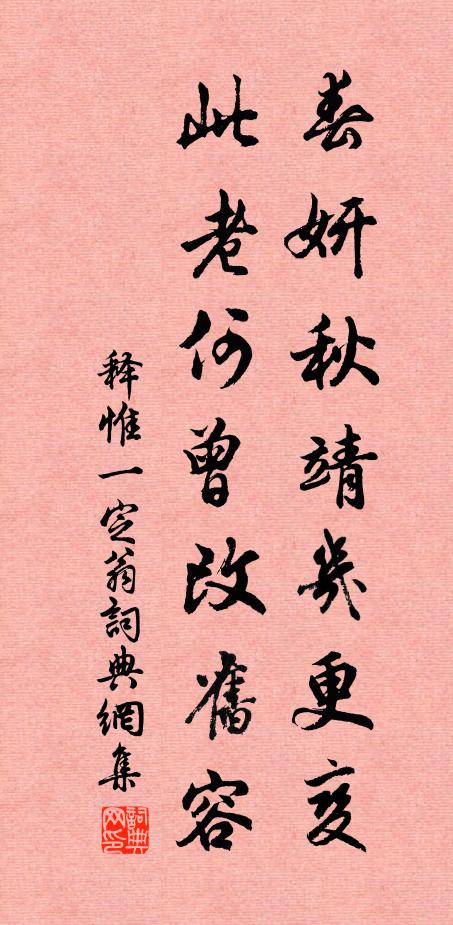 春妍秋靖几更变
此老何曾改舊容
释惟一定翁詞典網集
詞典网印